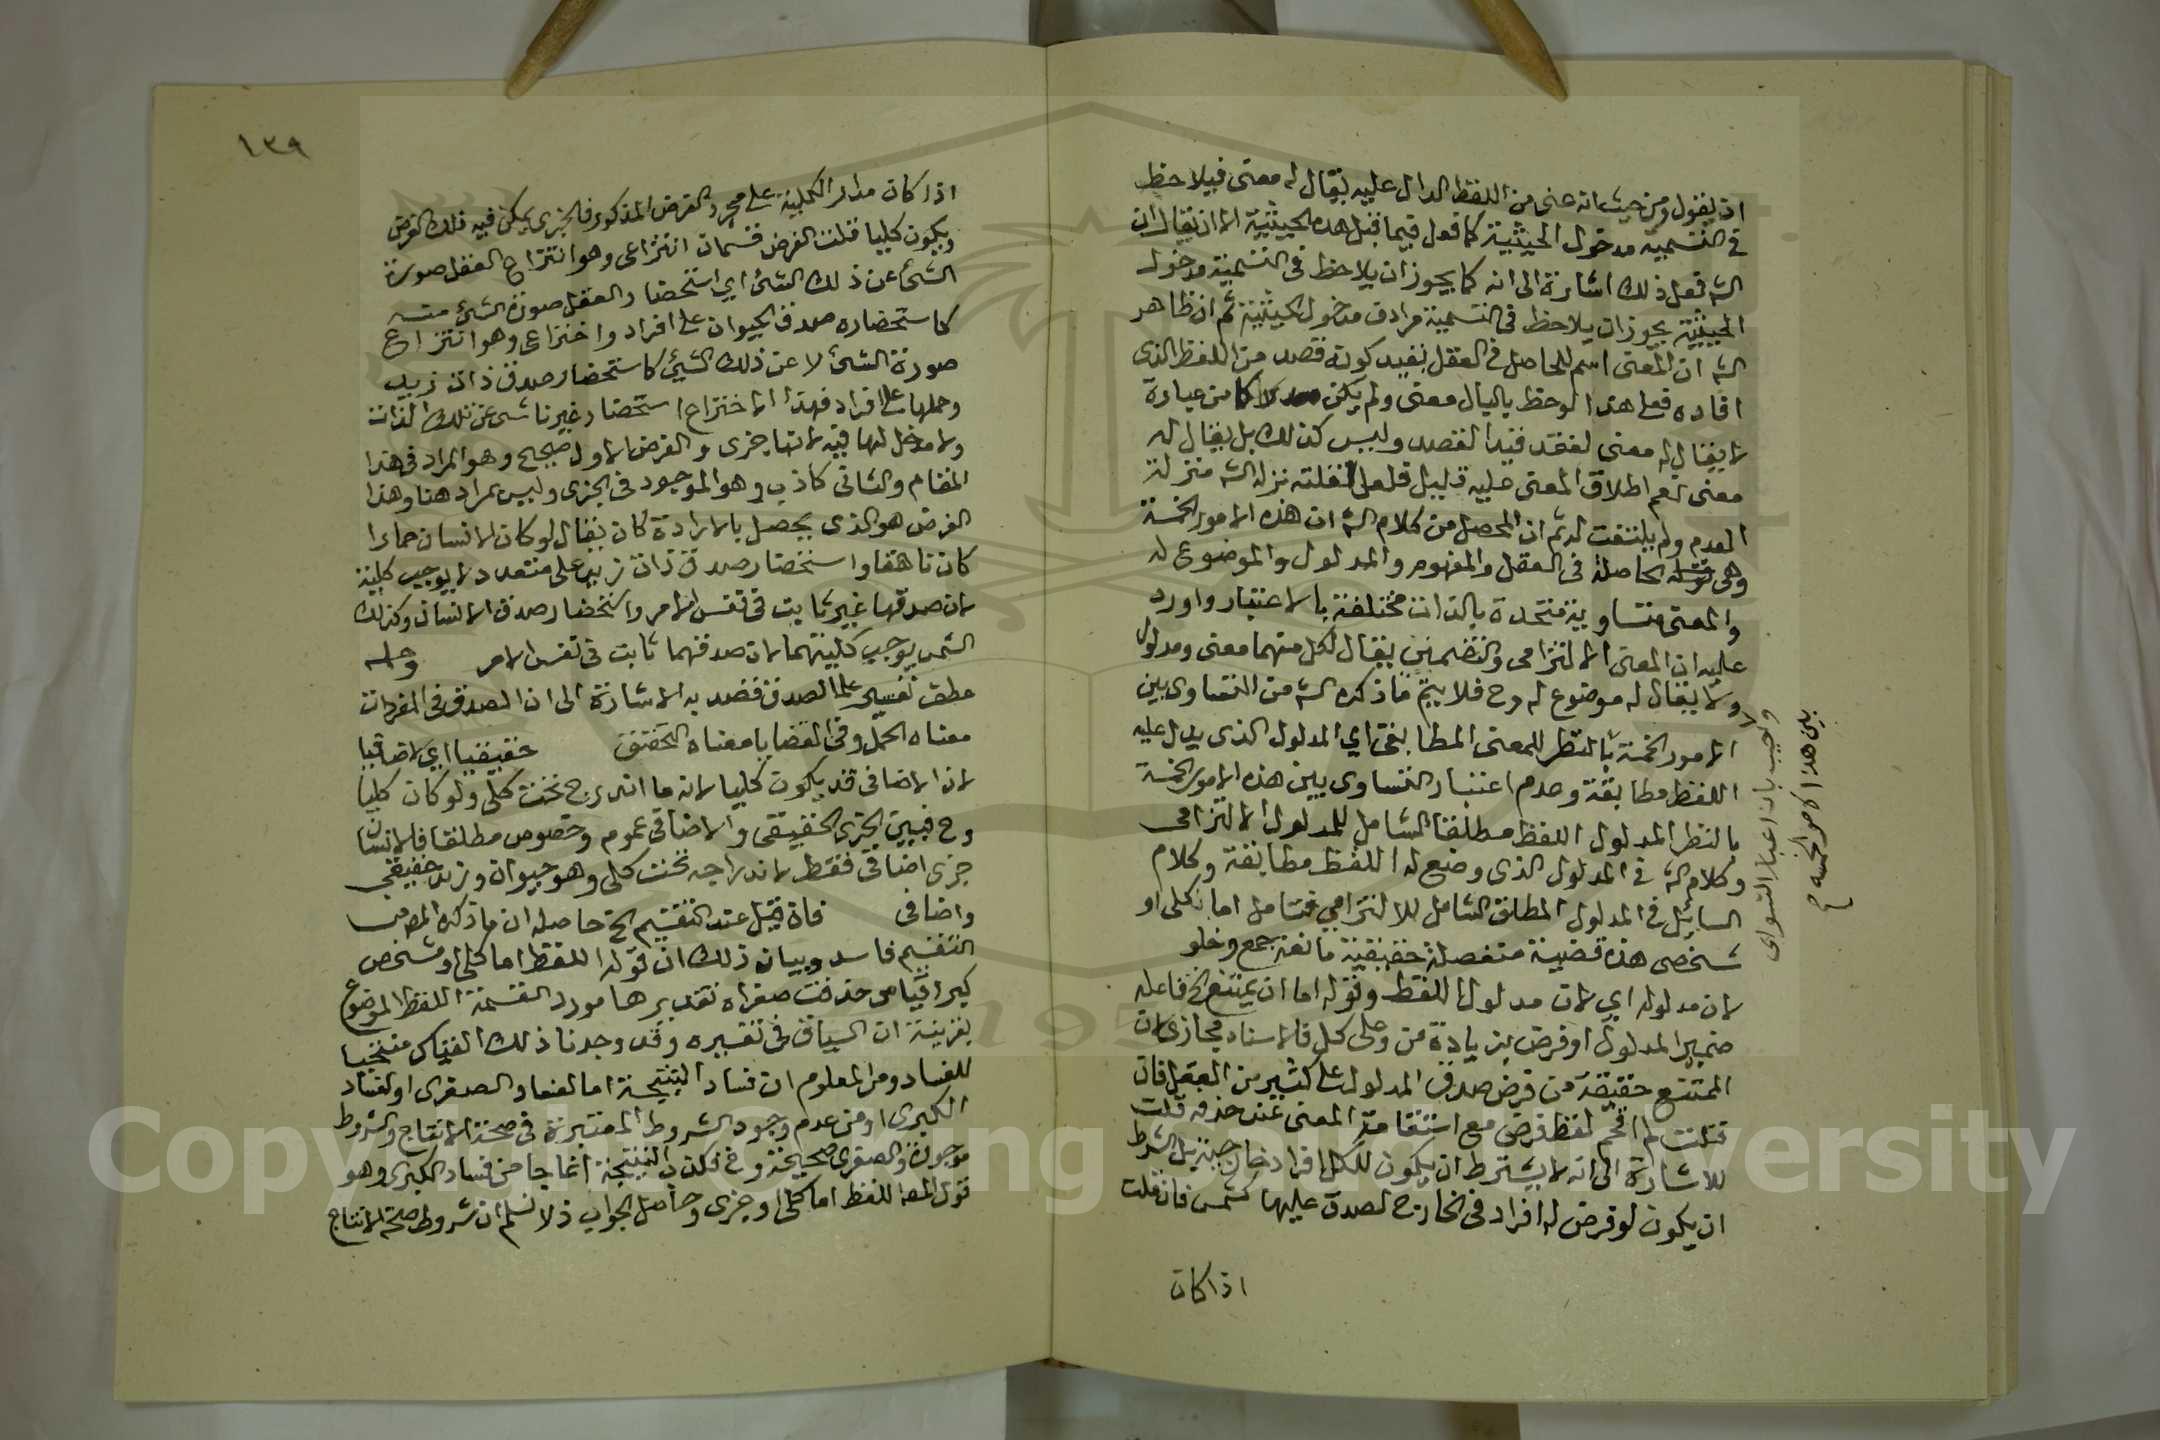 ان يقول ومن حيث انه عنى من اللفظ الدال عليه يقال له معنى فيلاحظ
في التسمية مدخول الحيثية كما فعل فيما قبل هذه الحيثية الا ان يقال ان
الشه فعل ذلك اشارة الى انه كما يجوز ان يلاحظ في التسمية مدخول
الحيثية يجوز ان يلاحظ في التسمية مرادف مدخول الحيثية ثم ان ظاهر
الشه ان المعنى اسم للحاصل في العقل بقيد كونه قصد من اللفظ الذي
افاده فعلى هذا لو حظ بالبال معنى ولم يكن مدركا من عبارة
لا يقال له معنى لفقد قيد القصد وليس كذلك بل يقال له
معنى نعم اطلاق المعنى عليه قليل فلعل لقلته نزله الشه منزلة
العدم ولم يلتفت له ثم ان المحصل من كلام الشه ان هذه الامور الخمسة
وهي الحاصلة في العقل والمفهوم والمدلول والموضوع له
والمعنى متساوية متحدة بالذات مختلفة بالاعتبار واورد
عليه ان المعنى الالتزامي والتضمين يقال لكل منهما معنى ومدلول
ولا يقال له موضوع له وح فلا يتم ما ذكره الشه من التساوي بين
الامور الخمسة بالنظر للمعنى المطابقي اي المدلول الذي يدل عليه
اللفظ مطابقة وعدم اعتبار التساوي بين هذه الامور الخمسة
بالنظر المدلول اللفظ مطلقا الشامل للمدلول الالتزامي
وكلام الشه في المدلول الذي وضع له اللفظ مطابقة وكلام
السائل في المدلول المطلق الشامل للالتزامي فتامل اما كلي او
شخصي هذه قضية منفصلة حقيقية مانعة جمع وخلو
لان مدلوله اي لان مدلول اللفظ وقوله اما ان يمتنع الخ فاعله
ضمير المدلول او فرض بزيادة من وعلى كل فالاسناد مجازي لان
الممتنع حقيقة من فرض صدق المدلول على كثير من العقل فان
قلت لم اقحم لفظ فرض مع استقامة المعنى عند حذفه قلت
للاشارة الى انه لا يشترط ان يكون للكلي افراد خارجية بل الشرط
ان يكون لو فرض له افراد في الخارج لصدق عليها كشمس فان قلت
اذا كان
واجيب بان اعتبار التساوي
بين هذه الامور الخمسة صح
١٣٩
اذا كان مدار الكلية على مجرد الفرض المذكور فالجزى يمكن فيه ذلك الفرض
ويكون كليا قلت الفرض قسمان انتزاعي وهو انتزاع العقل صورة
الشئ عن ذلك الشئ اي استحضار العقل صورة الشئ منه
كاستحضاره صدق الحيوان على افراد واختراعي وهو انتزاع
صورة الشئ لا عن ذلك الشئ كاستحضار صدق ذات زيد
وحملها على افراد فهذا الاختراع استحضار غير ناشئ عن تلك الذات
ولا مدخل لها فيه لانها جزى والفرض الاول صحيح وهو المراد في هذا
المقام والثاني كاذب وهو الموجود في الجزى وليس بمراد هنا وهذا
الفرض هو الذي يحصل بالارادة كان يقال لو كان الانسان حمارا
كان ناهقا واستحضار صدق ذات زيد على متعدد لا يوجب كلية
لان صدقها غير ثابت في نفس الامر واستحضار صدق الانسان وكذلك
الشمس يوجب كليتهما لان صدقهما ثابت في نفس الامر وحمله
عطف تفسير على الصدق قصد به الاشارة الى ان الصدق في المفردات
معناه الحمل وفي القضايا معناه التحقق حقيقيا اي لا اضافيا
لان الاضافي قد يكون كليا لانه ما اندرج تحت كلي ولو كان كليا
وح فبين الجزى الحقيقي والاضافي عموم وخصوص مطلقا فالانسان
جزى اضافي فقط لاندراجه تحت كلي وهو حيوان وزيد حقيقي
واضافي فان قيل عند التقسيم الخ حاصله ان ما ذكره المص من
التقسيم فاسد وبيان ذلك ان قوله اللفظ اما كلي او مشخص
كبرا قياس حذفت صغراه تقديرها مورد القسمة اللفظ الموضوع
بقرينة ان السياق في تقسيره وقد وجدنا ذلك القياس منتجا
للفساد ومن المعلوم ان فساد النتيجة اما لفساد الصغرى او لفساد
الكبرى او من عدم وجود الشروط المعتبرة في صحة الانتاج والشروط
موجودة والصغرى صحيحة وح فكذب النتيجة انما جا من فساد الكبرى وهو
قول المص اللفظ اما كلي او جزى وحاصل الجواب ذ لا نسلم ان شروط صحة الانتاج